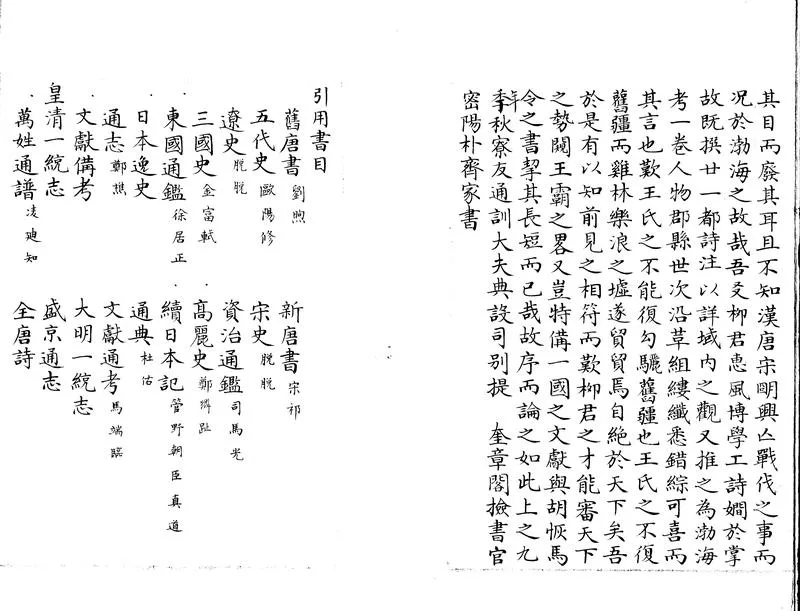 其目而廢其耳且不知漢唐宋明興亡戰伐之事而
况於渤海之故哉吾友柳君惠風博學工詩嫺於掌
故既撰廿一都詩注以詳域內之觀又推之為渤海
考一卷人物郡縣世次沿革組縷纖悉錯綜可喜而
其言也歎王氏之不能復勾驪舊疆也王氏之不復
舊疆而雞林樂浪之墟遂貿貿焉自絕於天下矣吾
於是有以知前見之相符而歎柳君之才能審天下
之勢闚王霸之畧又豈特備一國之文獻與胡恢馬
令之書挈其長短而已哉故序而論之如此上之九
年季秋寮友通訓大夫典設司別提 奎章閣撿書官
密陽朴齊家書
引用書目
舊唐書 劉煦 新唐書 宋祁
五代史 歐陽修 宋史 脫脫
遼史 脫脫 資治通鑑 司馬光
三國史 金富軾 高麗史 鄭獜趾
東國通鑑 徐居正 續日本記 菅野朝臣真道
日本逸史 通典 杜佑
通志 鄭樵 文獻通考 馬端臨
文獻備考 大明一統志
皇清一統志 盛京通志
萬姓通譜 凌迪知 全唐詩